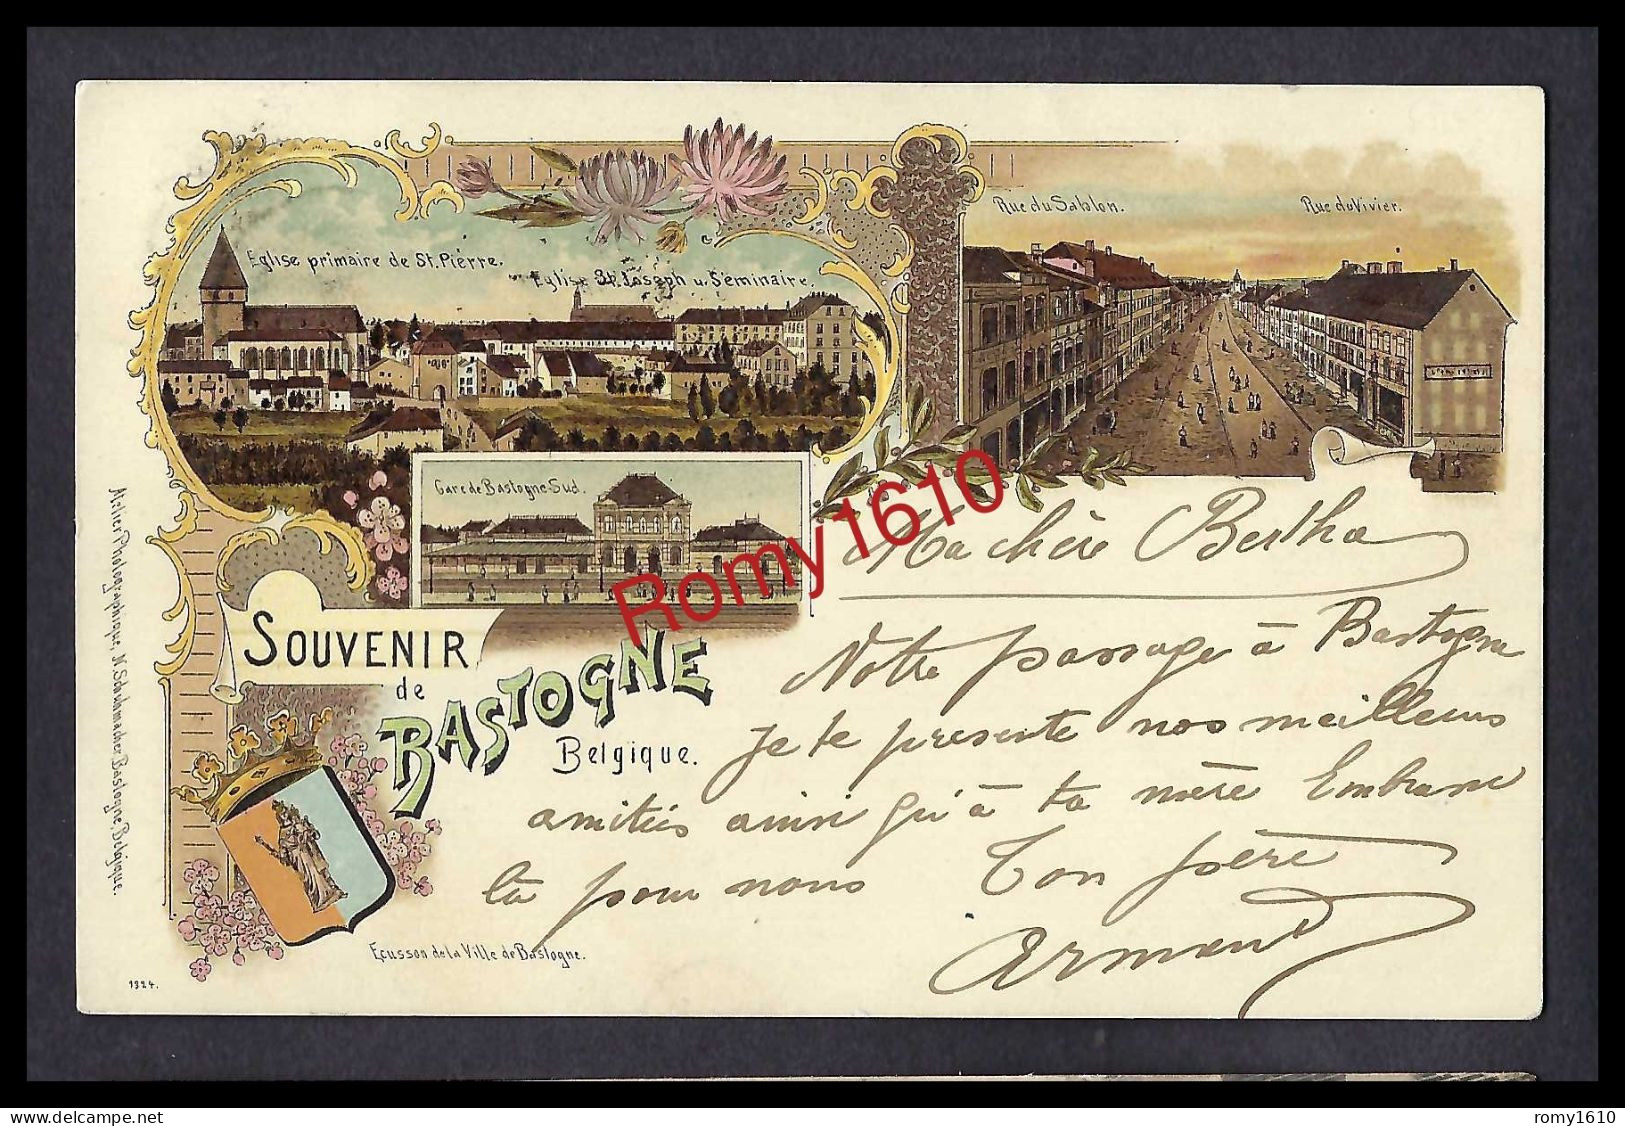 Eglise primaire de St. Pierre.
Eglise St. Joseph u. Séminaire.
Rue du Sablon.
Rue du Vivier.
Gare de Bastogne-Sud.
SOUVENIR
de
BASTOGNE
Belgique.
Ecusson de la Ville de Bastogne.
1924.
Atelier Photographique, N. Schuhmacher Bastogne, Belgique.
Ma chère Bertha
Notre passage à Bastogne
je te présente nos meilleurs
amitiés ainsi qu'à ta mère Embrasse
la pour nous Ton frère
Armand
Romy1610
delcampe.net
romy1610